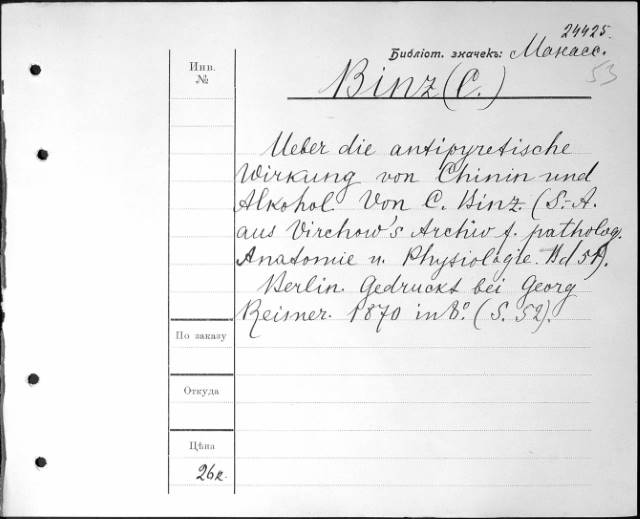 24425.
Библіот. значекъ: Манасс.
53
Инв.
№
Binz (C.)
Ueber die antipyretische
Wirkung von Chinin und
Alkohol. Von C. Binz. (S.-A.
aus Virchow's Archiv f. patholog.
Anatomie u. Physiologie. Bd 51).
Berlin. Gedruckt bei Georg
Reimer. 1870 in 8º. (S. 52).
По заказу
Откуда
Цѣна
26к.